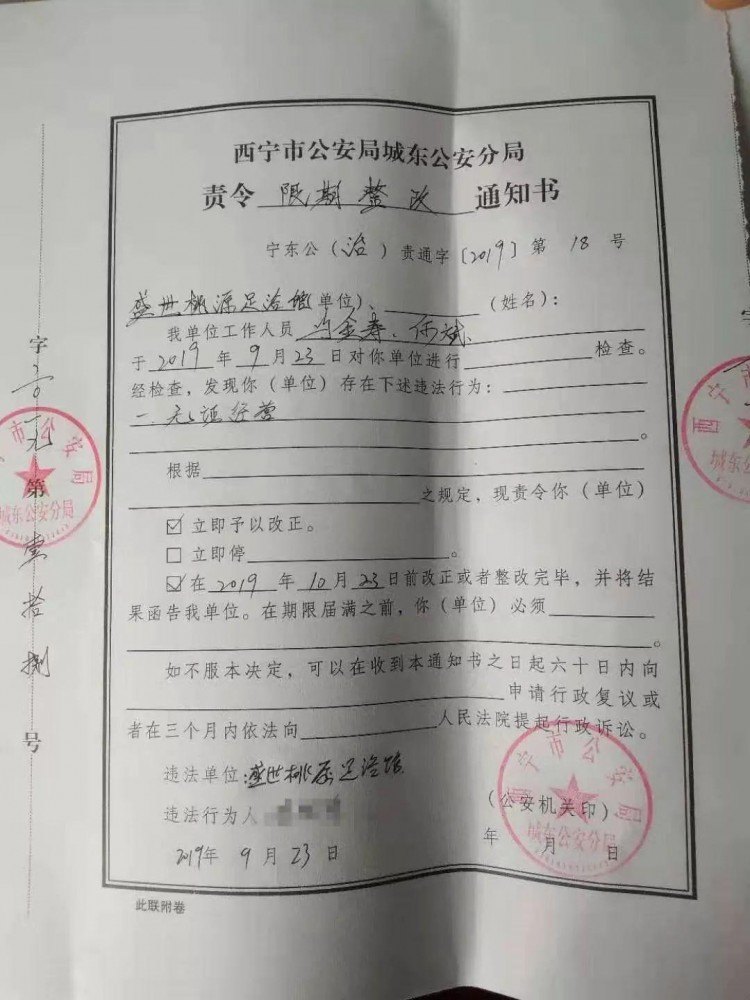 西宁市公安局城东公安分局
责令 限期整改 通知书
宁东公（治）责通字〔2019〕第 18 号
盛世桃源足浴馆(单位)、（姓名）：
我单位工作人员 马金寿、何斌
于 2019 年 9 月 23 日对你单位进行 检查。
经检查，发现你（单位）存在下述违法行为：
一、无证经营
。
根据
之规定，现责令你（单位）
☑ 立即予以改正。
□ 立即停 。
☑ 在 2019 年 10 月 23 日前改正或者整改完毕，并将结
果函告我单位。在期限届满之前，你（单位）必须
。
如不服本决定，可以在收到本通知书之日起六十日内向
申请行政复议或
者在三个月内依法向 人民法院提起行政诉讼。
违法单位:盛世桃源足浴馆
违法行为人
（公安机关印）
2019年 9 月 23 日
年 月 日
此联附卷
字
第
壹
拾
捌
号
西宁市公安局
城东公安分局
市公安局
城东公安分局
西
城东